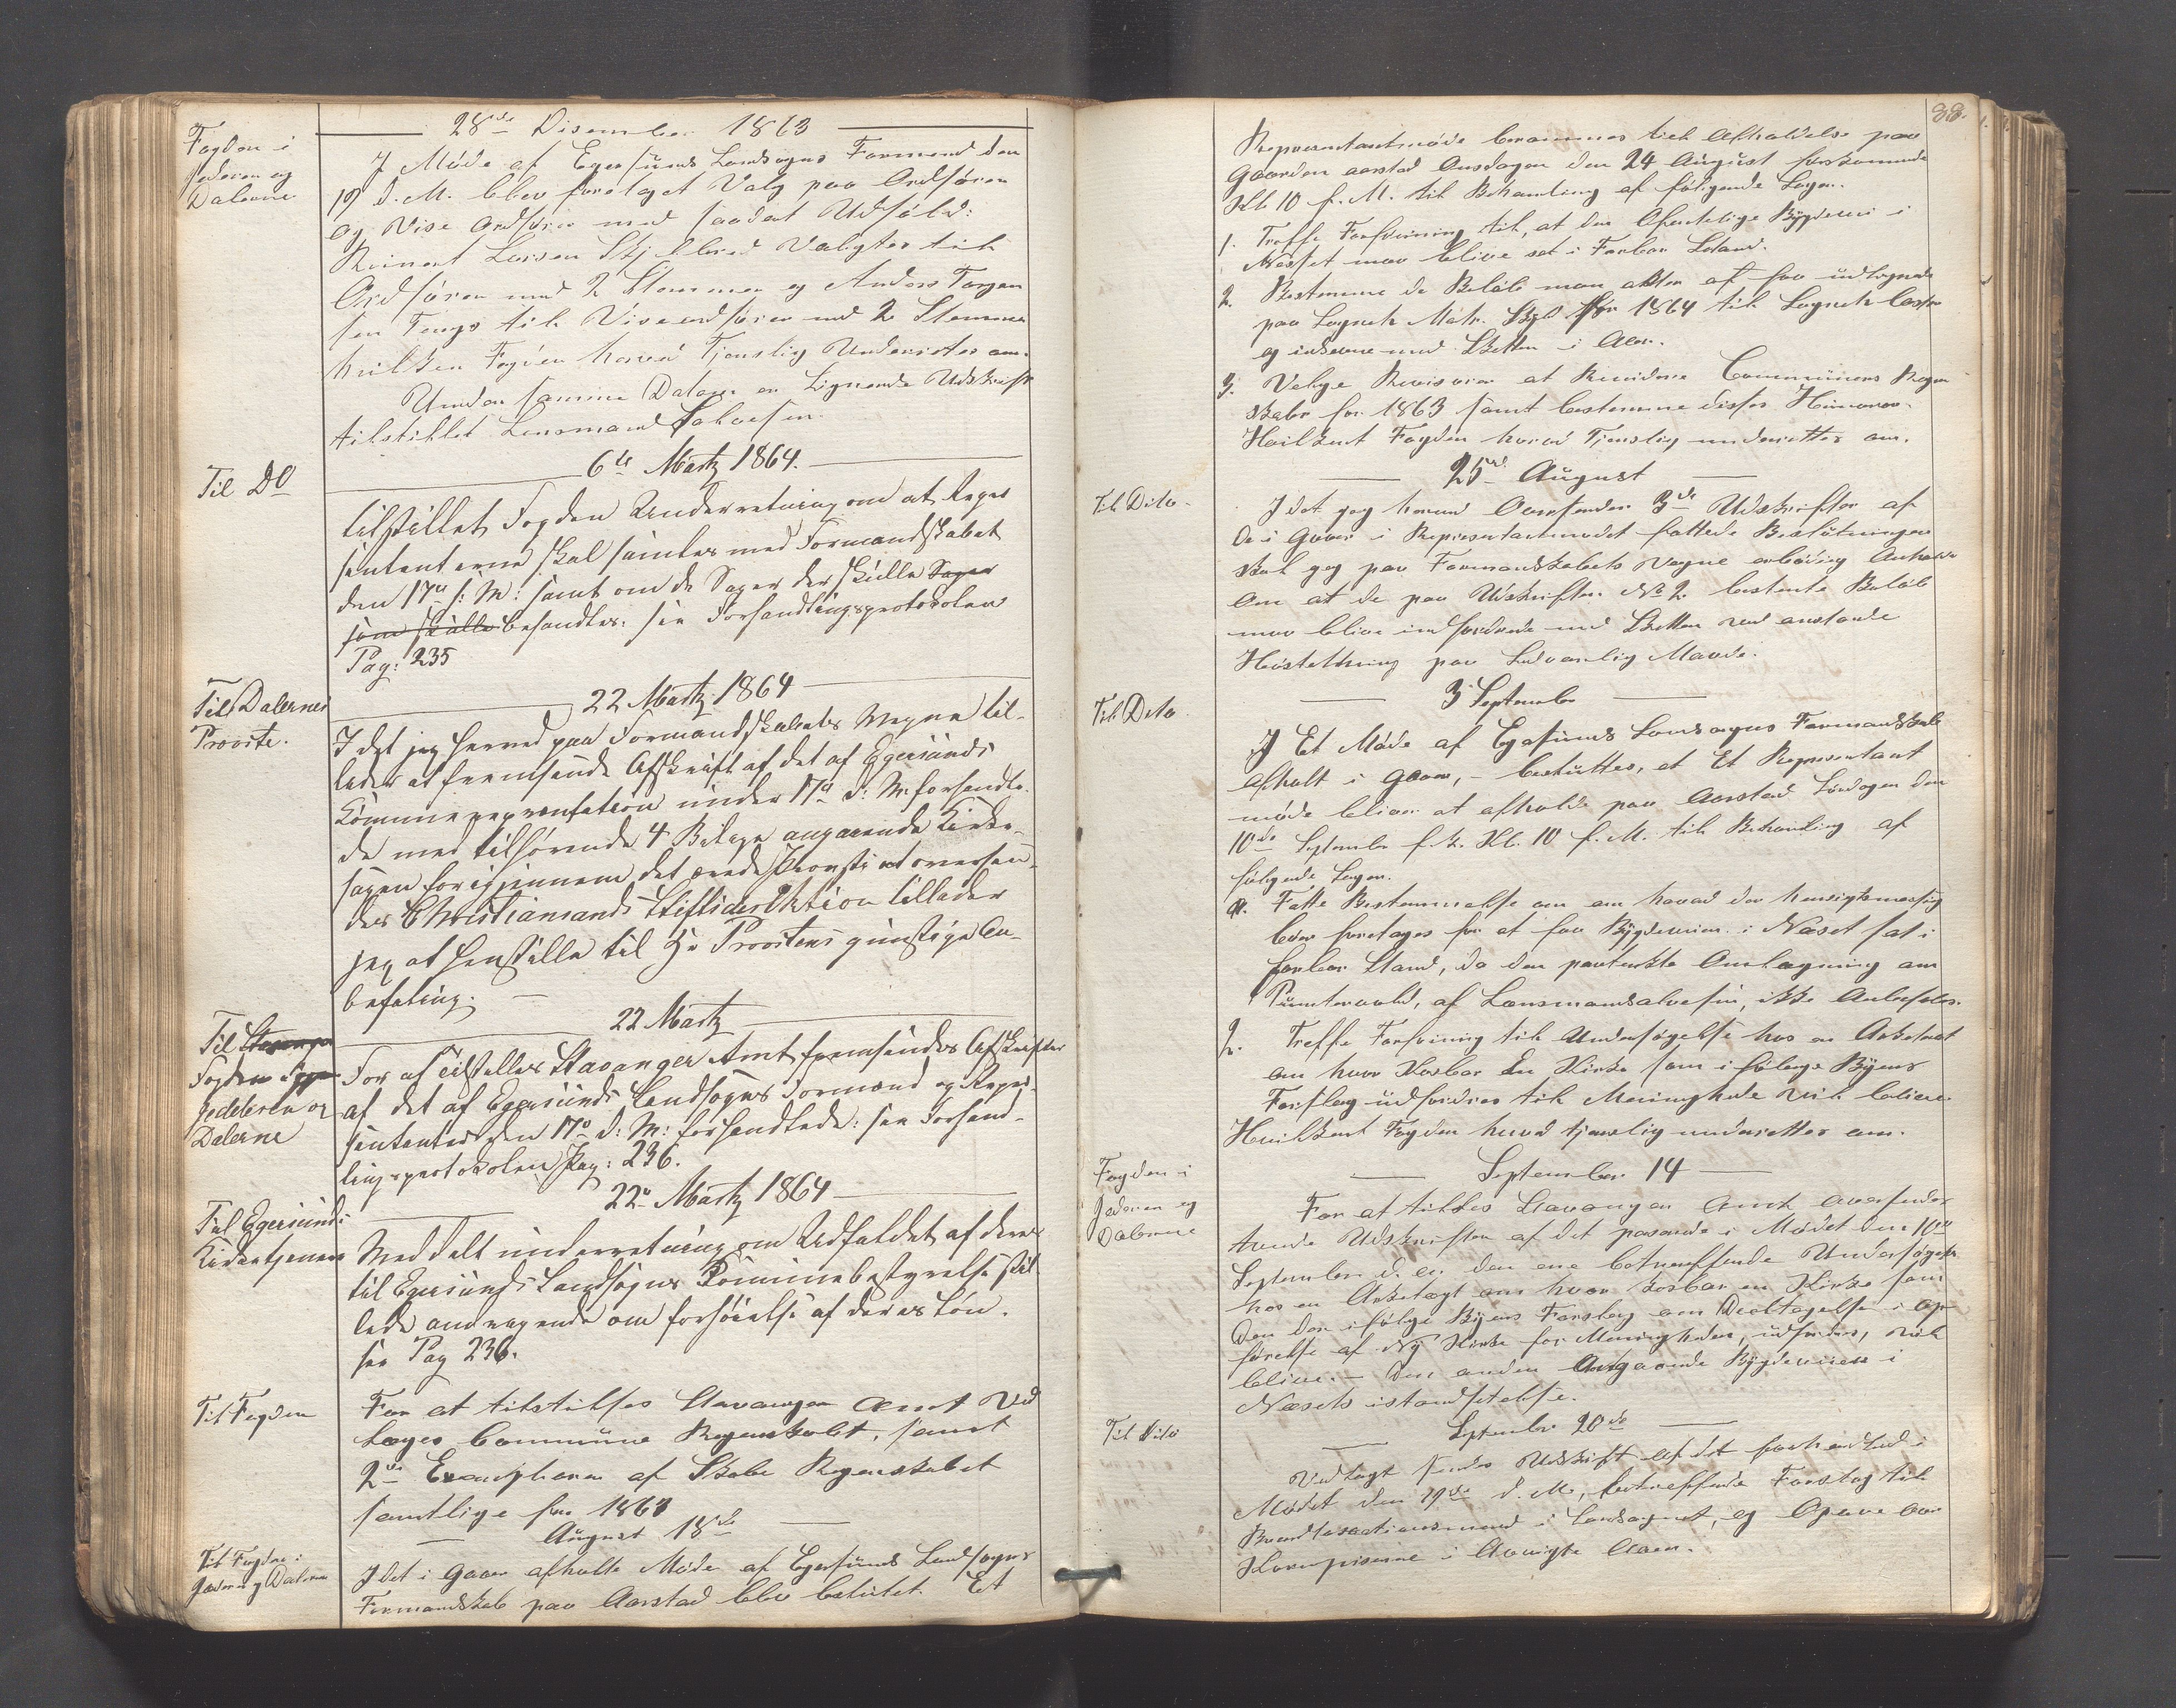 28de Disember 1863
Fogden i
Jæderen og
Dalerne
I Møde af Egersunds Landsogns Formend den
19 d. M. blev foretaget Valg paa Ordfører
og Vise Ordfører med saadat Udfald:
Reinert Larsen Skjelbred Valgtes til
Ordfører med 2 Stemmer og Anders Torger
sen Tengs til Viseordfører med 2 Stemmer
hvilken Fogden herved Tjenslig Underrettes om.
Under samme Datom en Lignende Udskrift
tilstillet Lensmand Salvesen.
6te Martz 1864.
Til Do
tilstillet Fogden Underretning om at Repre
sentanterne skal samles med Formandskabet
den 17de s: M: samt om de Sager der skulle Sager
som skulle behandles. see Forhandlingsprotokolen
Pag: 235
22 Martz 1864
Til Dalernes
Provste.
I det jeg herved paa Formandskabets Vegne til-
lader at fremsende Afskrift af det af Egersunds
Kommunerepresentation under 17de d: M: forhandle-
de med tilhørende 4 Bilage angaaende Kirke-
sagen for igjennem det ærede Provsti at oversen-
des Christiansands Stiftsdirektion tillader
jeg at henstille til Hr Provstens gunstige An-
befaling.
22 Martz
Til Stavanger
Fogden i
Jedderen og
Dalerne
For at tilstilles Stavanger Amt fremsendes Afskrifter
af det af Egersunds Landsogns Formend og Repre-
sentanter den 17de d: M: forhandlede: see Forhand-
lingsprotokolen Pag: 236.
22de Martz 1864
Til Egersunds
Kirketjenere
Meddelt underretning om Udfaldet af deres
til Egersunds Landsogns Kommunebestyrelse stil
lede andragende om forhøielse af deres Løn.
see Pag 236.
Til Fogden
For at tilstilles Stavanger Amt Ved
læges Commune Regenskabt, samt
2de Exemplarer af Skole Regenskabet
samtlige for 1863
August 18de
Til Fogden i
Jæderen og Dalerne
I det i Gaar afholte Møde af Egersunds Landsogns
Formandskab paa Aarstad blev besluttet. Et
88.
Representantmøde berammes til Afholdelse paa
Gaarden aarstad Onsdagen den 24 August førstkommende
Kl 10 f. M. til Behandling af følgende Sager.
1. Treffe Forføining til, at den Ofentelige Bygdevei i
Nesset maa blive sat i Farbar Stand.
2. Bestemme de Beløb man akter at faa udlignede
paa Sognets Matr. Skyld for 1864 til Sognets Casse
og inkreve med Skatten i Aar.
3. Velge Revisorer at Revidere Communens Regen
skaber for 1863 samt bestemme disses Honorar.
Hvilket Fogden herved Tjenslig underrettes om.
25de August
Til Dito
I det jeg herved Oversender 3de Udskrifter af
de i Gaar i Representantmødet fattede Beslutninger
skal jeg paa Formandskabets Vegne erbødig Anholde
Om at de paa Udskriften No 2. bestemte Beløb
maa blive indfordrede med Skatten ved anstaaende
Høstething paa Sedvanlig Maade.
3 September
Til Dito
I Et Møde af Egersunds Landsogns Formandskab
afholt i Gaar, – besluttes, at Et Representant
møde bliver at afholde paa Aarstad Lørdagen den
10de September f. k. Kl. 10 f. M. til Behandling af
følgende Sager.
1. Fatte Bestemmelse om om hvad der hensigtsmessig
bør foretages for at faa Bygdeveien i Næset sat i
farbar Stand, da den paatenkte Omlegning om
Puntervold, af Lensmand Salvesen, ikke Anbefales.
2. Treffe Forføining til Undersøgelse hos en Arkitekt
om hvor Kosbar En Kirke som i følge Byens
Forslag udfordres til Menigheden vil blive.
Hvilket Fogden herved tjenslig underrettes om.
September 14
Fogden i
Jæderen og
Dalerne
For at tilstilles Stavanger Amt oversendes
tvende Udskrifter af det passerede i Mødet den 10de
September d. er den ene betreffende Undersøgelse
hos en Arkitegt om hvor kosbar en Kirke som
den der i følge Byens Forslag om Deeltagelse i Op
førelse af Ny Kirke for Menigheden, udfordres, vil
blive. – den anden Angaaende Bygdeveien i
Næsets istandsettelse.
September 20de
Til Dito
Vedlagt sendes Udskrift af det forhandled i
Mødet den 19de d. M., betreffende Forslag til
Brandtaxationsmend i Landsognet, og Opgave over
Kornpriserne i Avvigte Aaer.